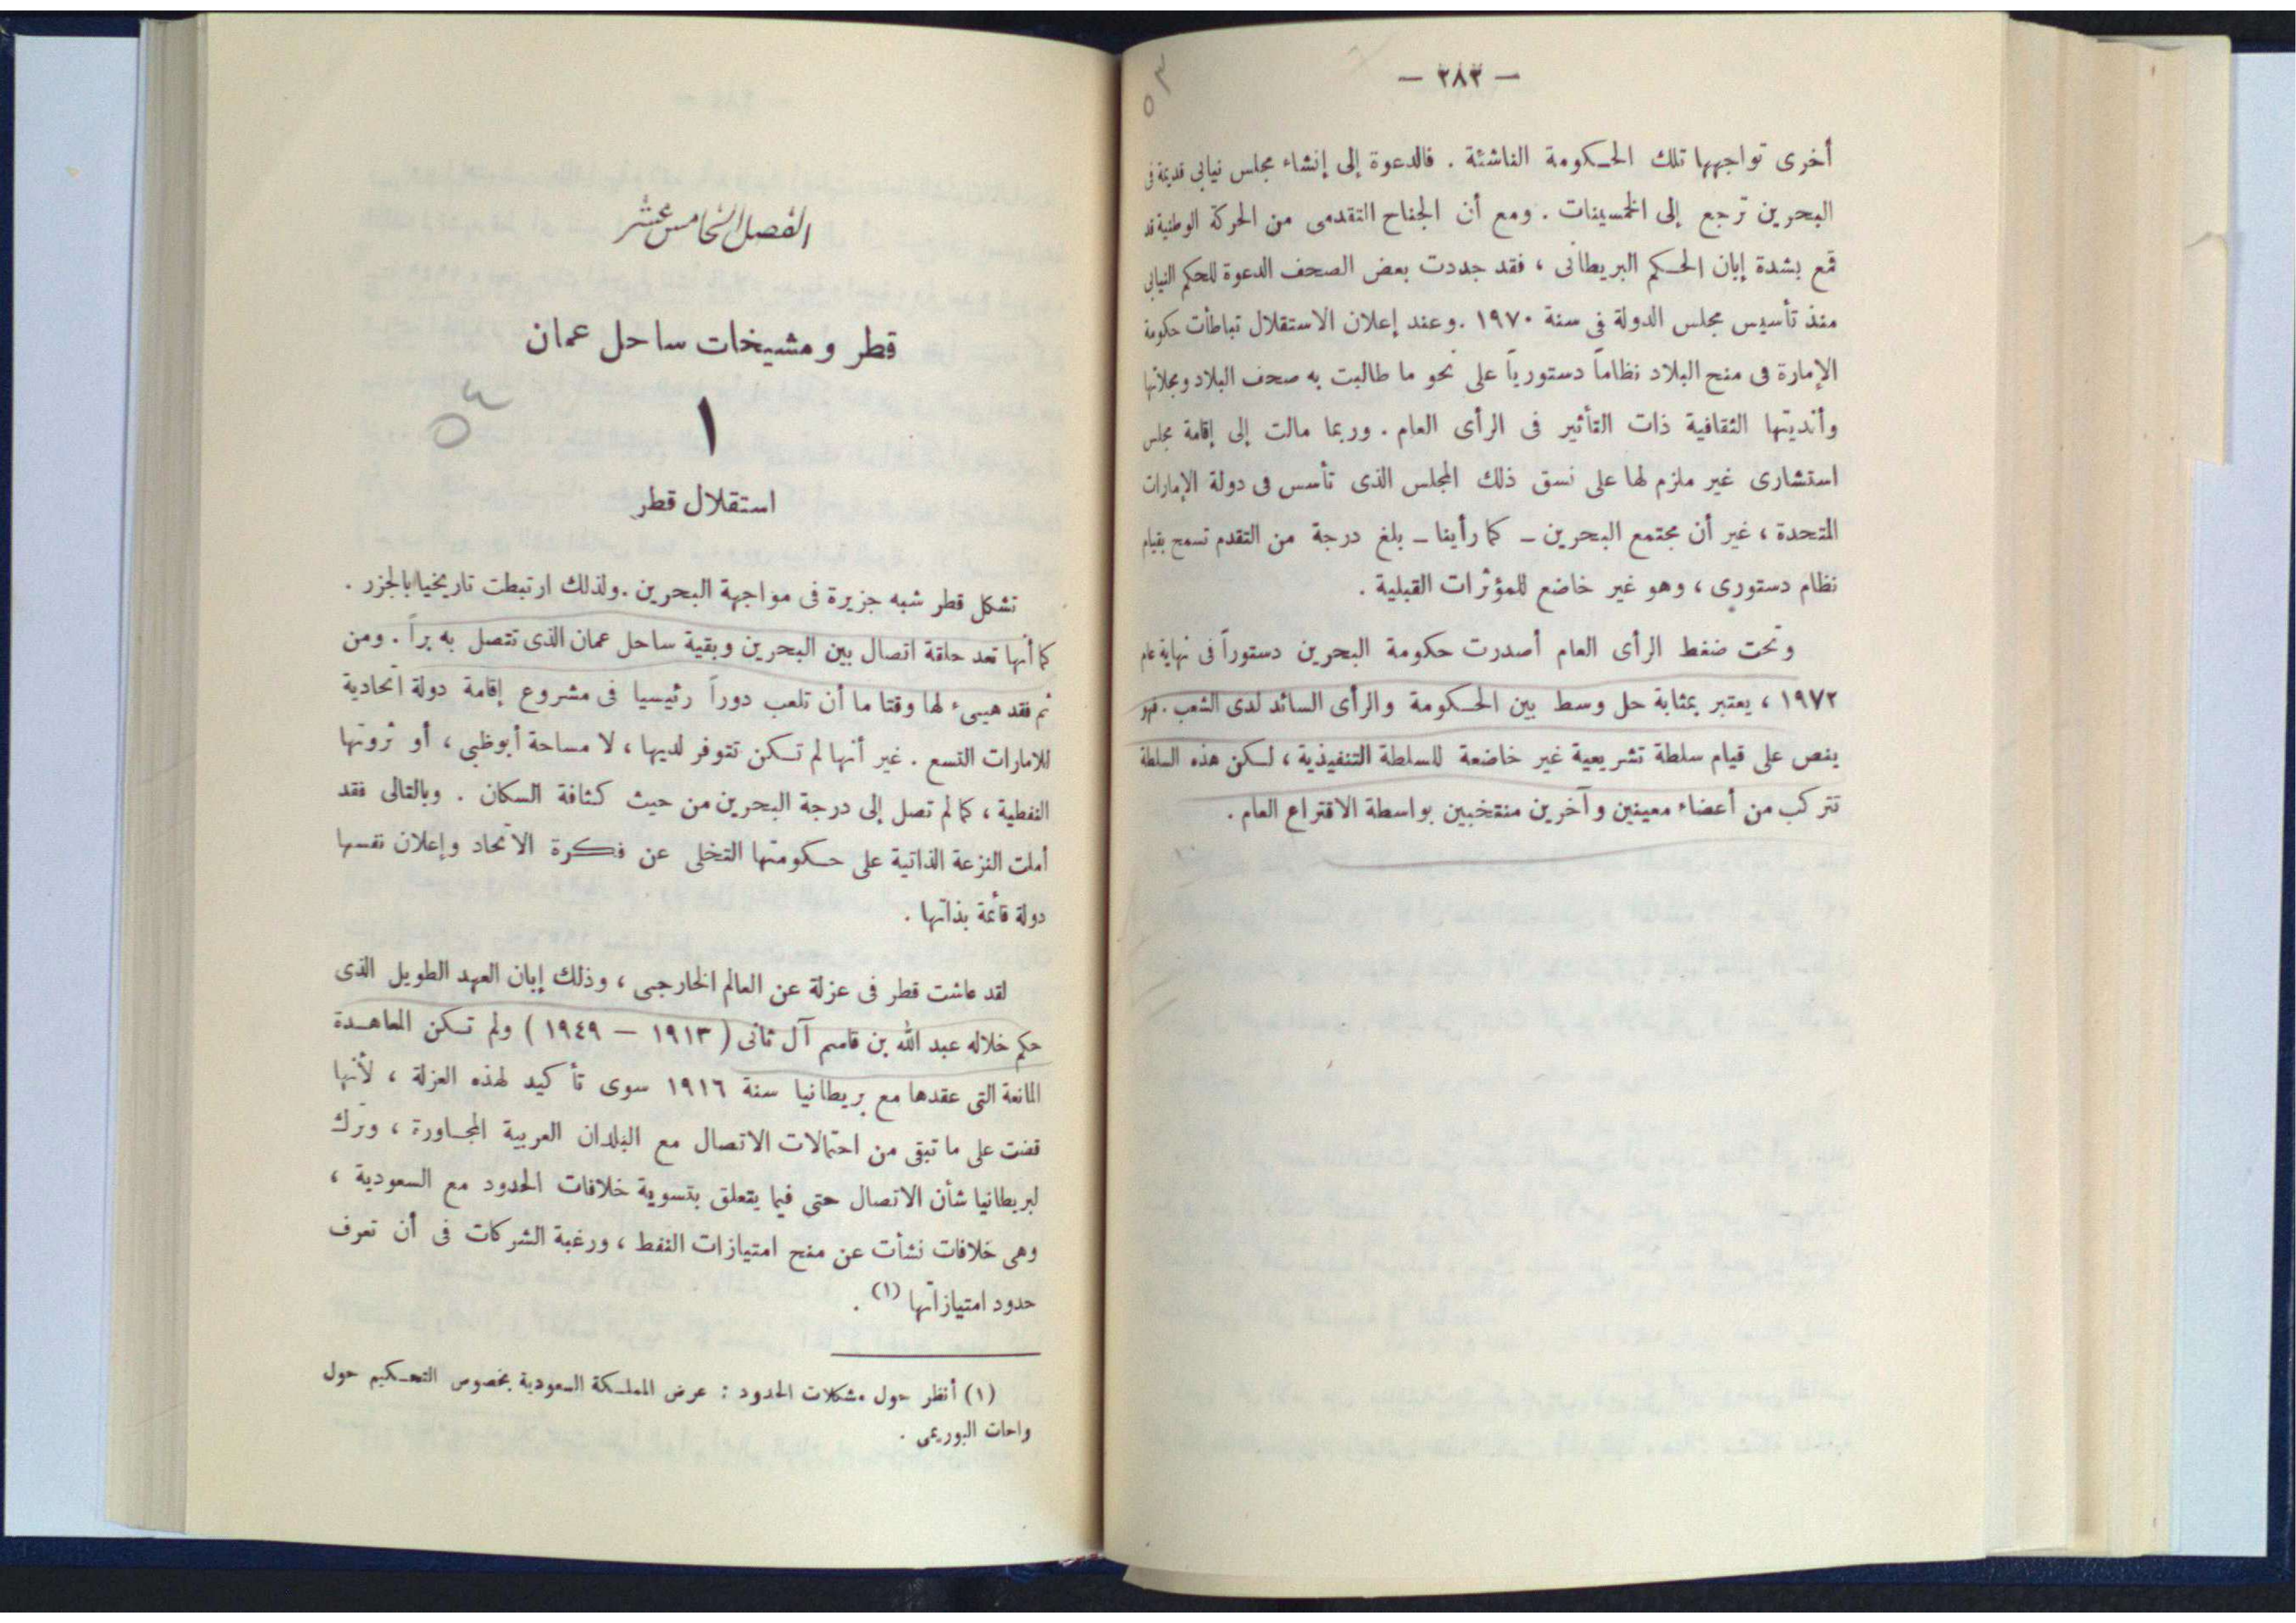 — ٢٨٣ —
أخرى تواجهها تلك الحكومة الناشئة . فالدعوة إلى إنشاء مجلس نيابى قديمة فى
البحرين ترجع إلى الخمسينات . ومع أن الجناح التقدمى من الحركة الوطنية قد
قمع بشدة إبان الحكم البريطانى ، فقد جددت بعض الصحف الدعوة للحكم النيابى
منذ تأسيس مجلس الدولة فى سنة ١٩٧٠ . وعند إعلان الاستقلال تباطأت حكومة
الإمارة فى منح البلاد نظاماً دستورياً على نحو ما طالبت به صحف البلاد ومجلاتها
وأنديتها الثقافية ذات التأثير فى الرأى العام . وربما مالت إلى إقامة مجلس
استشارى غير ملزم لها على نسق ذلك المجلس الذى تأسس فى دولة الإمارات
المتحدة ، غير أن مجتمع البحرين – كما رأينا – بلغ درجة من التقدم تسمح بقيام
نظام دستورى ، وهو غير خاضع للمؤثرات القبلية .
وتحت ضغط الرأى العام أصدرت حكومة البحرين دستوراً فى نهاية عام
١٩٧٢ ، يعتبر بمثابة حل وسط بين الحكومة والرأى السائد لدى الشعب . فهو
ينص على قيام سلطة تشريعية غير خاضعة للسلطة التنفيذية ، لكن هذه السلطة
تتركب من أعضاء معينين وآخرين منتخبين بواسطة الاقتراع العام .
٥٣
الفصل الخامس عشر
قطر ومشيخات ساحل عمان
٥٤
١
استقلال قطر
تشكل قطر شبه جزيرة فى مواجهة البحرين . ولذلك ارتبطت تاريخيا بالجزر .
كما أنها تعد حلقة اتصال بين البحرين وبقية ساحل عمان الذى تتصل به براً . ومن
ثم فقد هيىء لها وقتا ما أن تلعب دوراً رئيسيا فى مشروع إقامة دولة اتحادية
للامارات التسع . غير أنها لم تكن تتوفر لديها ، لا مساحة أبوظبى ، أو ثروتها
النفطية ، كما لم تصل إلى درجة البحرين من حيث كثافة السكان . وبالتالى فقد
أملت النزعة الذاتية على حكومتها التخلى عن فكرة الاتحاد وإعلان نفسها
دولة قائمة بذاتها .
لقد عاشت قطر فى عزلة عن العالم الخارجى ، وذلك إبان العهد الطويل الذى
حكم خلاله عبد الله بن قاسم آل ثانى ( ١٩١٣ – ١٩٤٩ ) ولم تكن المعاهدة
المانعة التى عقدها مع بريطانيا سنة ١٩١٦ سوى تأكيد لهذه العزلة ، لأنها
قضت على ما تبقى من احتمالات الاتصال مع البلدان العربية المجاورة ، وترك
لبريطانيا شأن الاتصال حتى فيما يتعلق بتسوية خلافات الحدود مع السعودية ،
وهى خلافات نشأت عن منح امتيازات النفط ، ورغبة الشركات فى أن تعرف
حدود امتيازاتها (١) .
(١) أنظر حول مشكلات الحدود : عرض المملكة السعودية بخصوص التحكيم حول
واحات البوريمى .